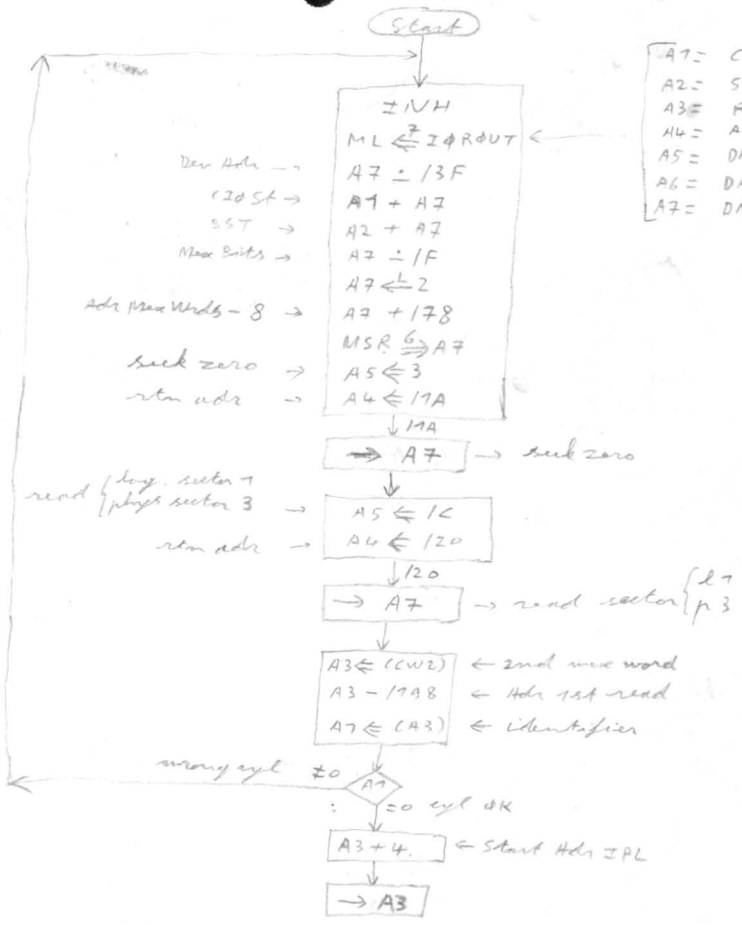 Start
A1= C
A2= S
A3= R
A4= A
A5= DA
A6= DA
A7= DA
INH
ML ⇐ 7 IØRØUT ←
Dev Adr → A7 ∸ /3F
CIØ St → A1 + A7
SST → A2 + A7
Mex Bits → A7 ∸ /F
A7 ⇐ L 2
Adr Mex Words - 8 → A7 + /78
MSR 6⇒ A7
seek zero → A5 ⇐ 3
rtn adr → A4 ⇐ /1A
↓ /1A
→ A7 → seek zero
read { log. sector 1
phys sector 3 → A5 ⇐ /C
rtn adr → A4 ⇐ /20
↓ /20
→ A7 → read sector { l 1
p 3
A3 ⇐ (CW2) ← 2nd mux word
A3 - /198 ← Adr 1st read
A1 ⇐ (A3) ← identifier
wrong cyl ≠0 A1
: =0 cyl ØK
A3 + 4. ← Start Adr IPL
→ A3